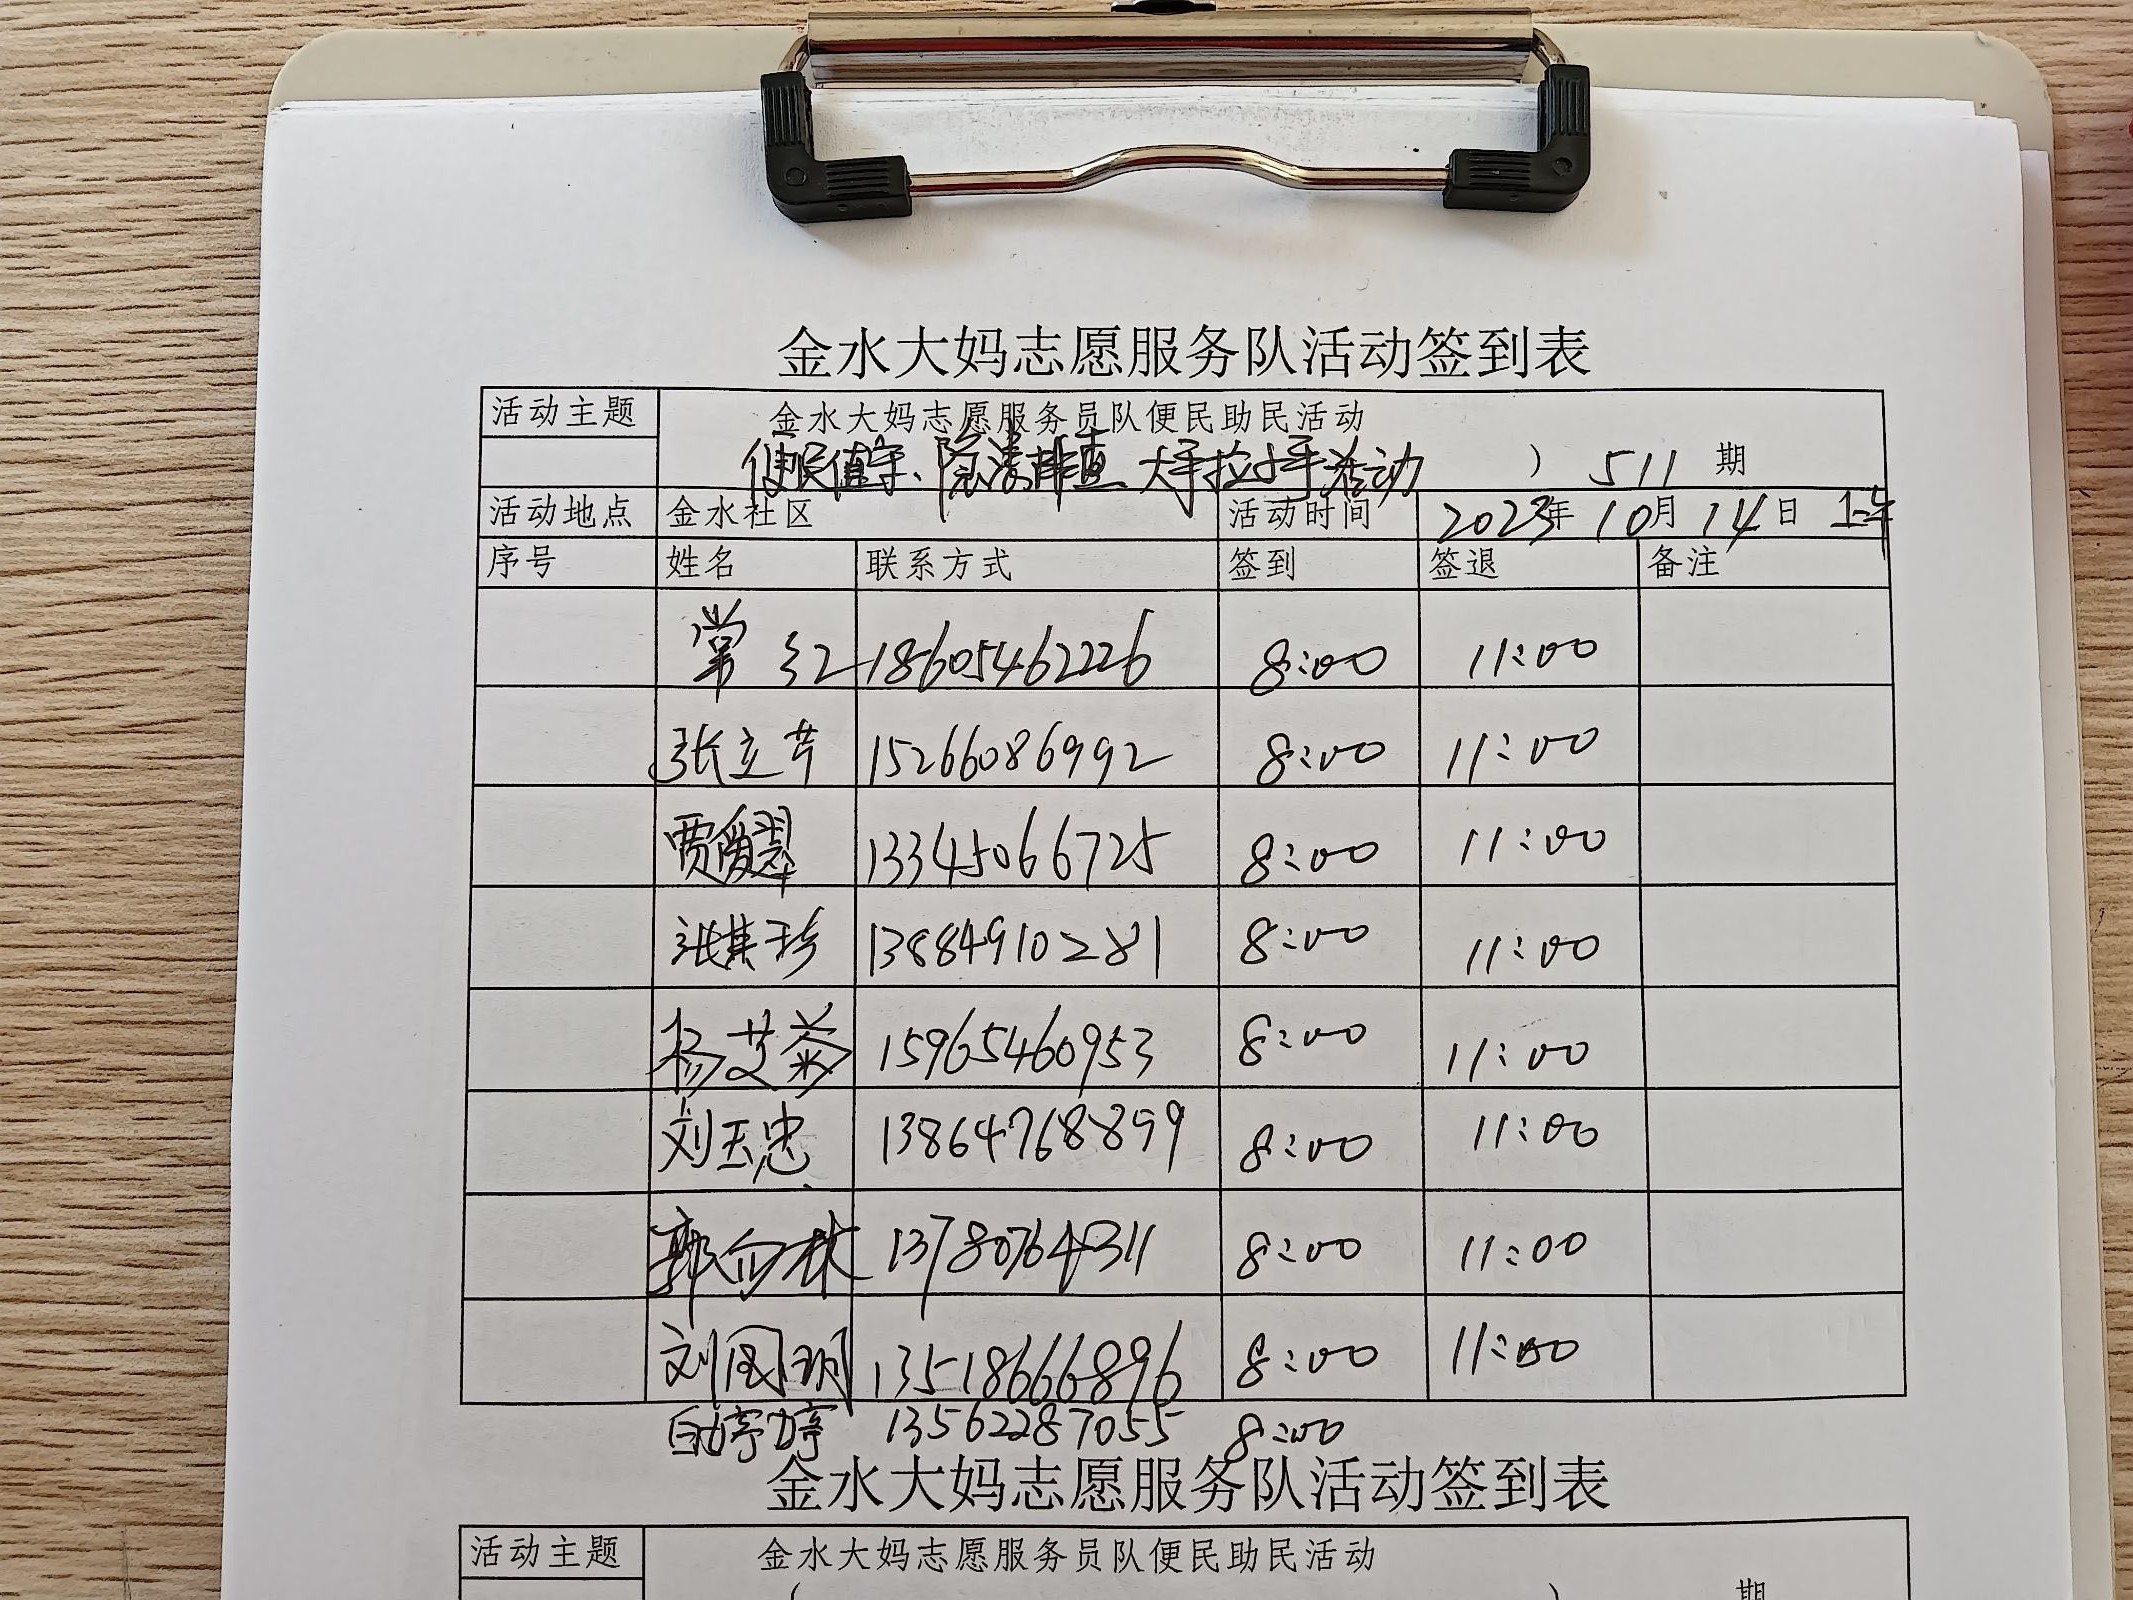 金水大妈志愿服务队活动签到表
活动主题 金水大妈志愿服务员队便民助民活动
便民值守、隐患排查、大手拉小手活动 ） 511 期
活动地点 金水社区 活动时间 2023年 10月 14日 上午
序号 姓名 联系方式 签到 签退 备注
常红 18605462226 8:00 11:00
张立芹 15266086992 8:00 11:00
贾爱翠 13345066725 8:00 11:00
张其珍 13884910281 8:00 11:00
杨艾菊 15965460953 8:00 11:00
刘玉忠 13864768899 8:00 11:00
郭向林 13780764311 8:00 11:00
刘国明 13518666896 8:00 11:00
白婷婷 13562287055 8:00
金水大妈志愿服务队活动签到表
活动主题 金水大妈志愿服务员队便民助民活动
（ ） 期